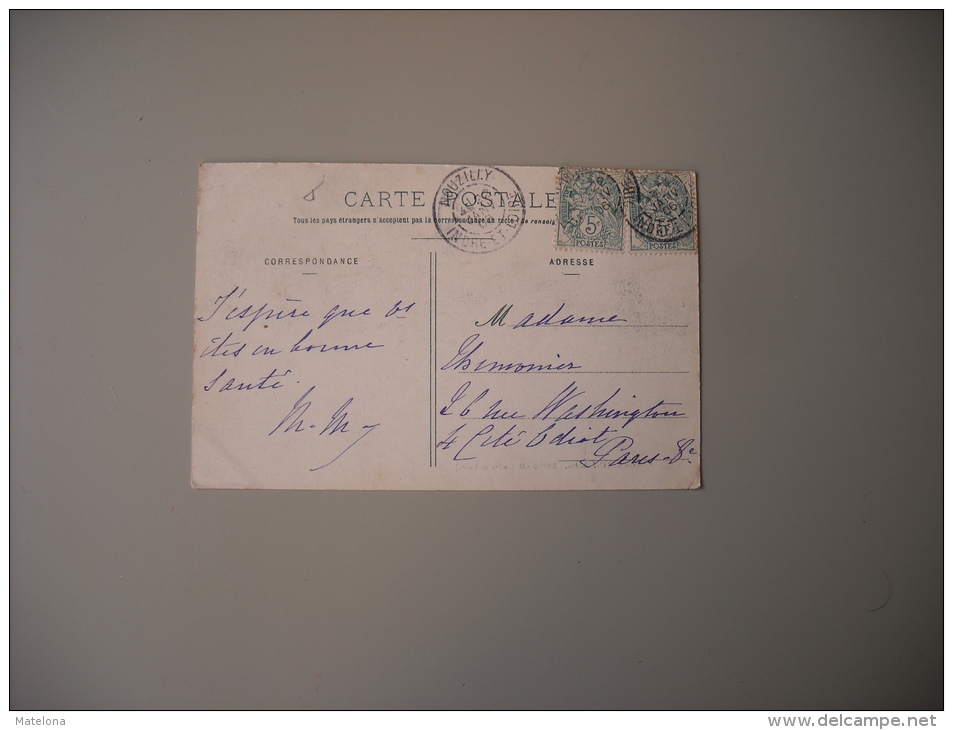 CARTE POSTALE
Tous les pays étrangers n'acceptent pas la correspondance au recto
ROUZILLY
INDRE-ET-LOIRE
5
POSTES
POSTES
CORRESPONDANCE
J'espère que vs
êtes en bonne
santé.
M. M
ADRESSE
Madame
Themonier
26 rue Washington
4 Cité Odiot
Paris-8e
Matelona
www.delcampe.net